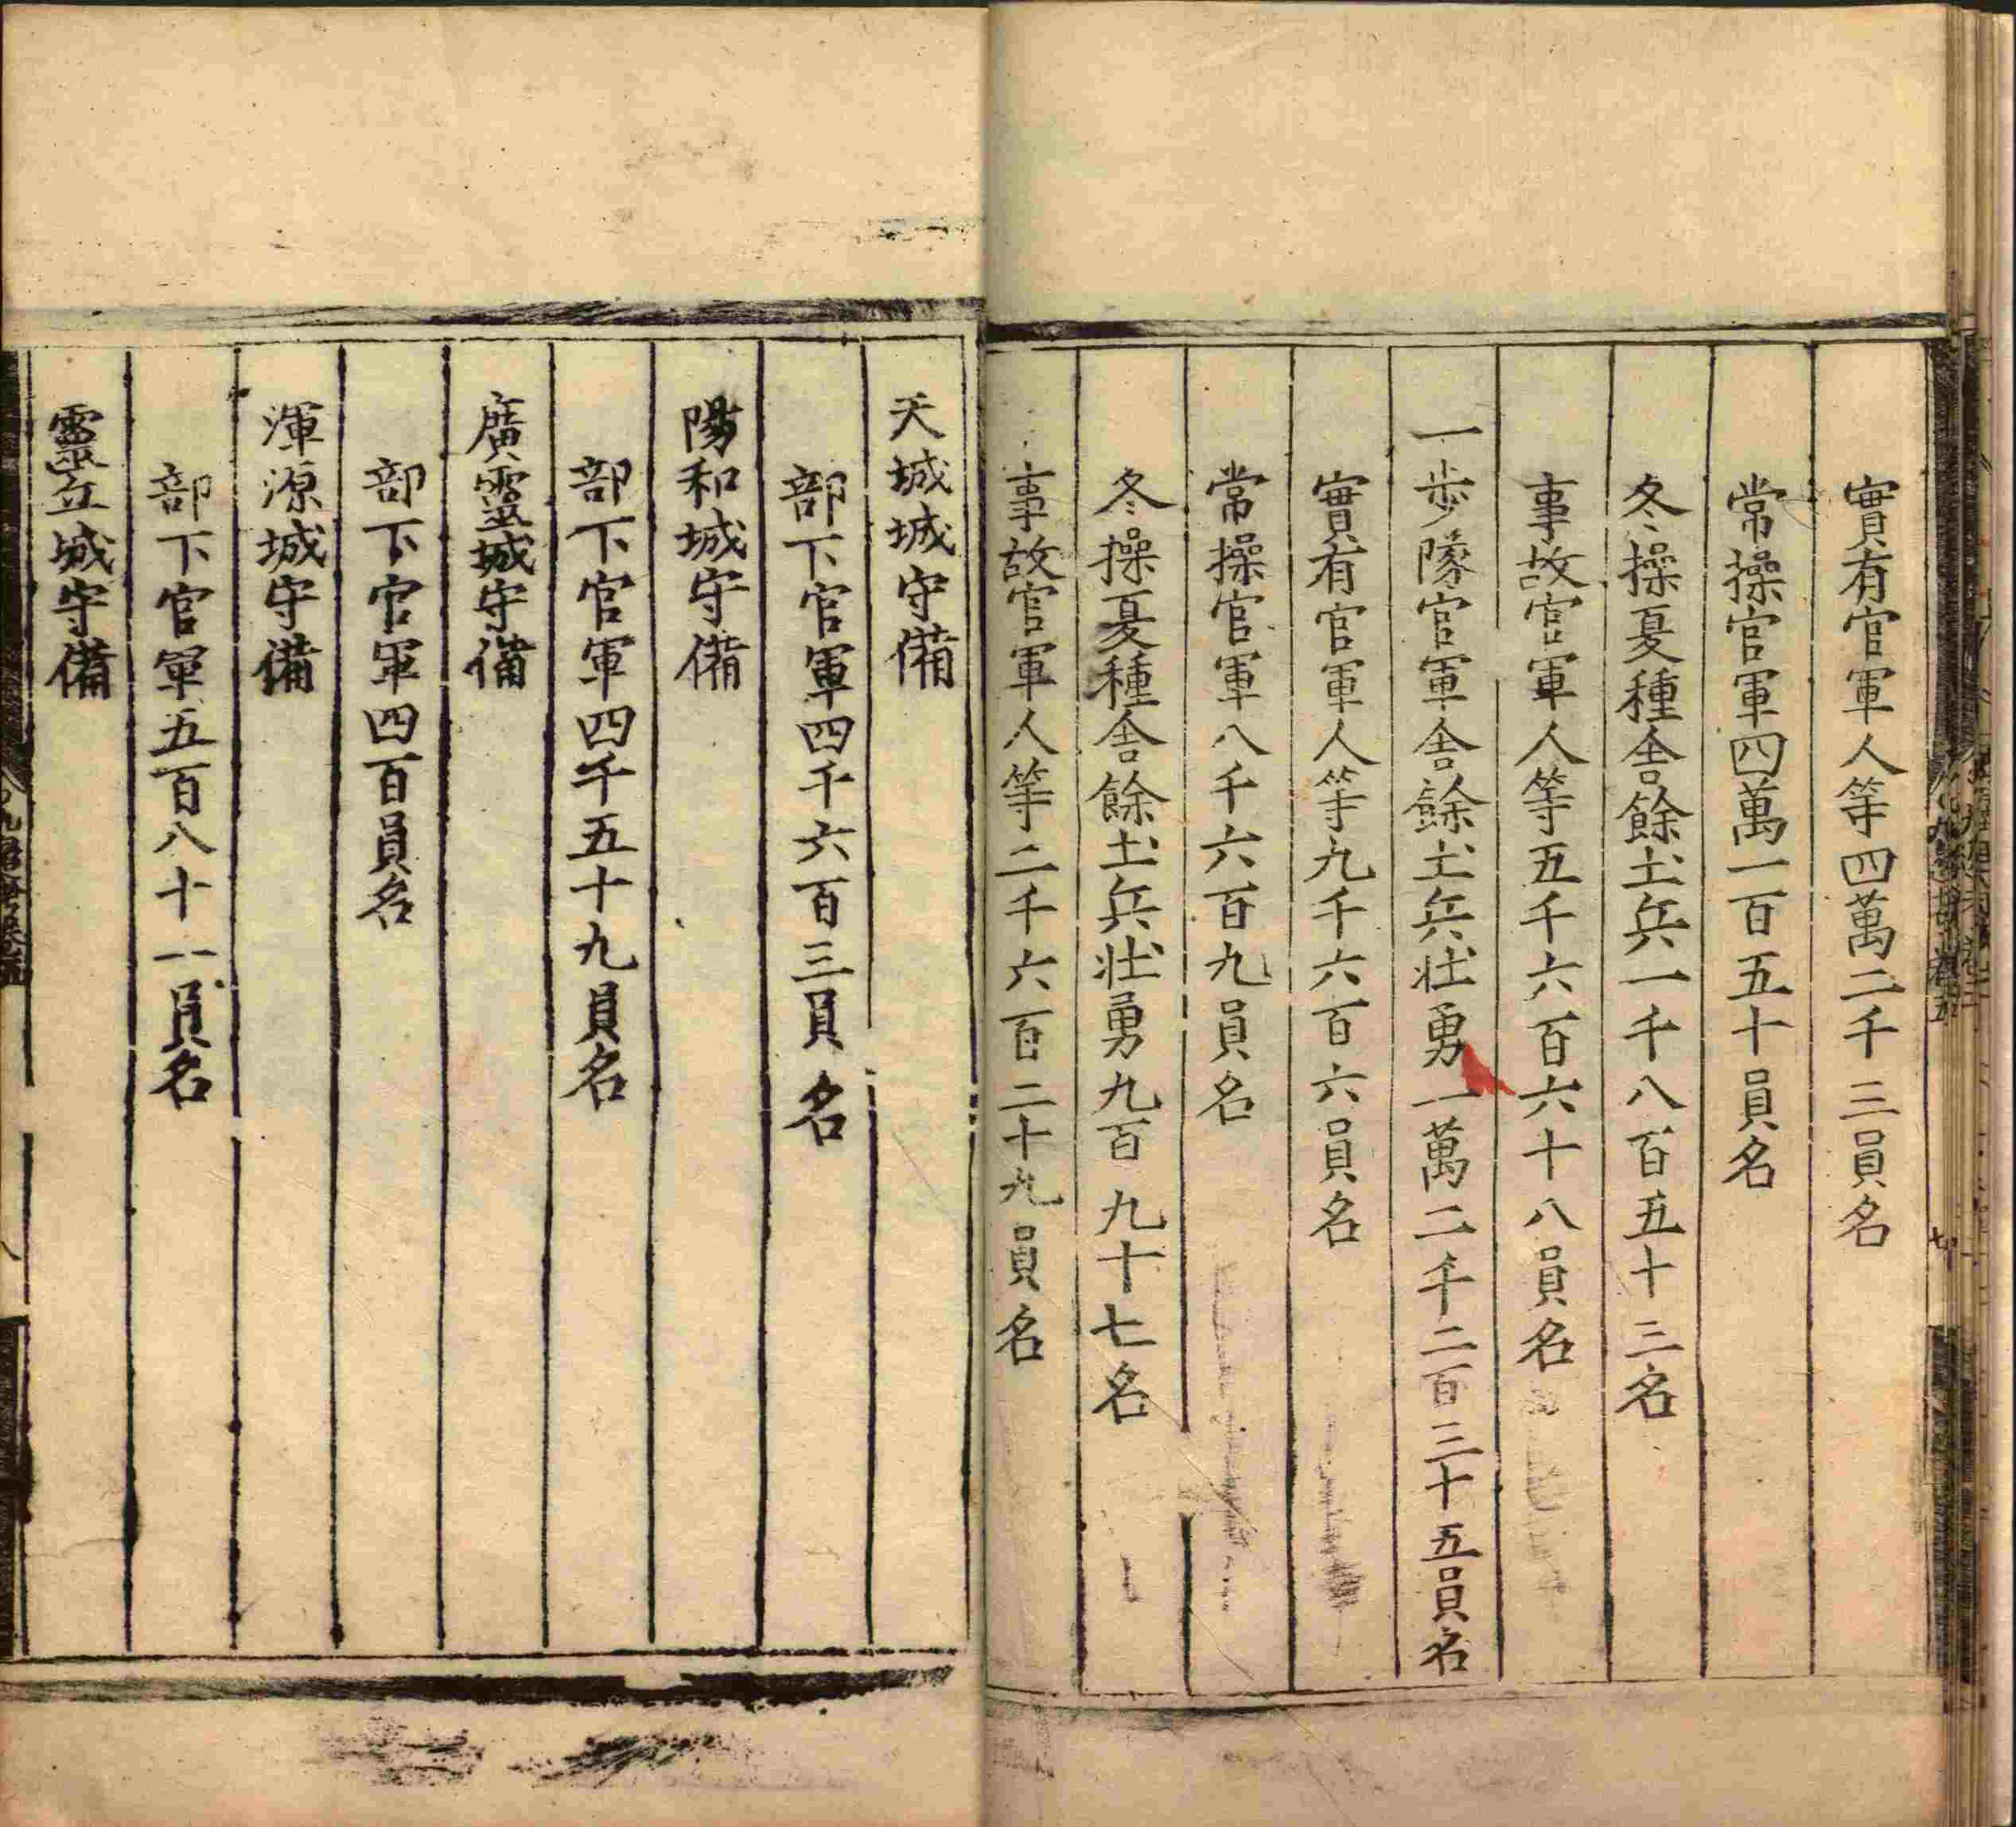 實有官軍人等四萬二千三員名
常操官軍四萬一百五十員名
冬操夏種舍餘土兵一千八百五十三名
事故官軍人等五千六百六十八員名
一步隊官軍舍餘土兵壯勇一萬二千二百三十五員名
實有官軍人等九千六百六員名
常操官軍八千六百九員名
冬操夏種舍餘土兵壯勇九百九十七名
事故官軍人等二千六百二十九員名
天城城守備
部下官軍四千六百三員名
陽和城守備
部下官軍四千五十九員名
廣靈城守備
部下官軍四百員名
渾源城守備
部下官軍五百八十一員名
靈丘城守備